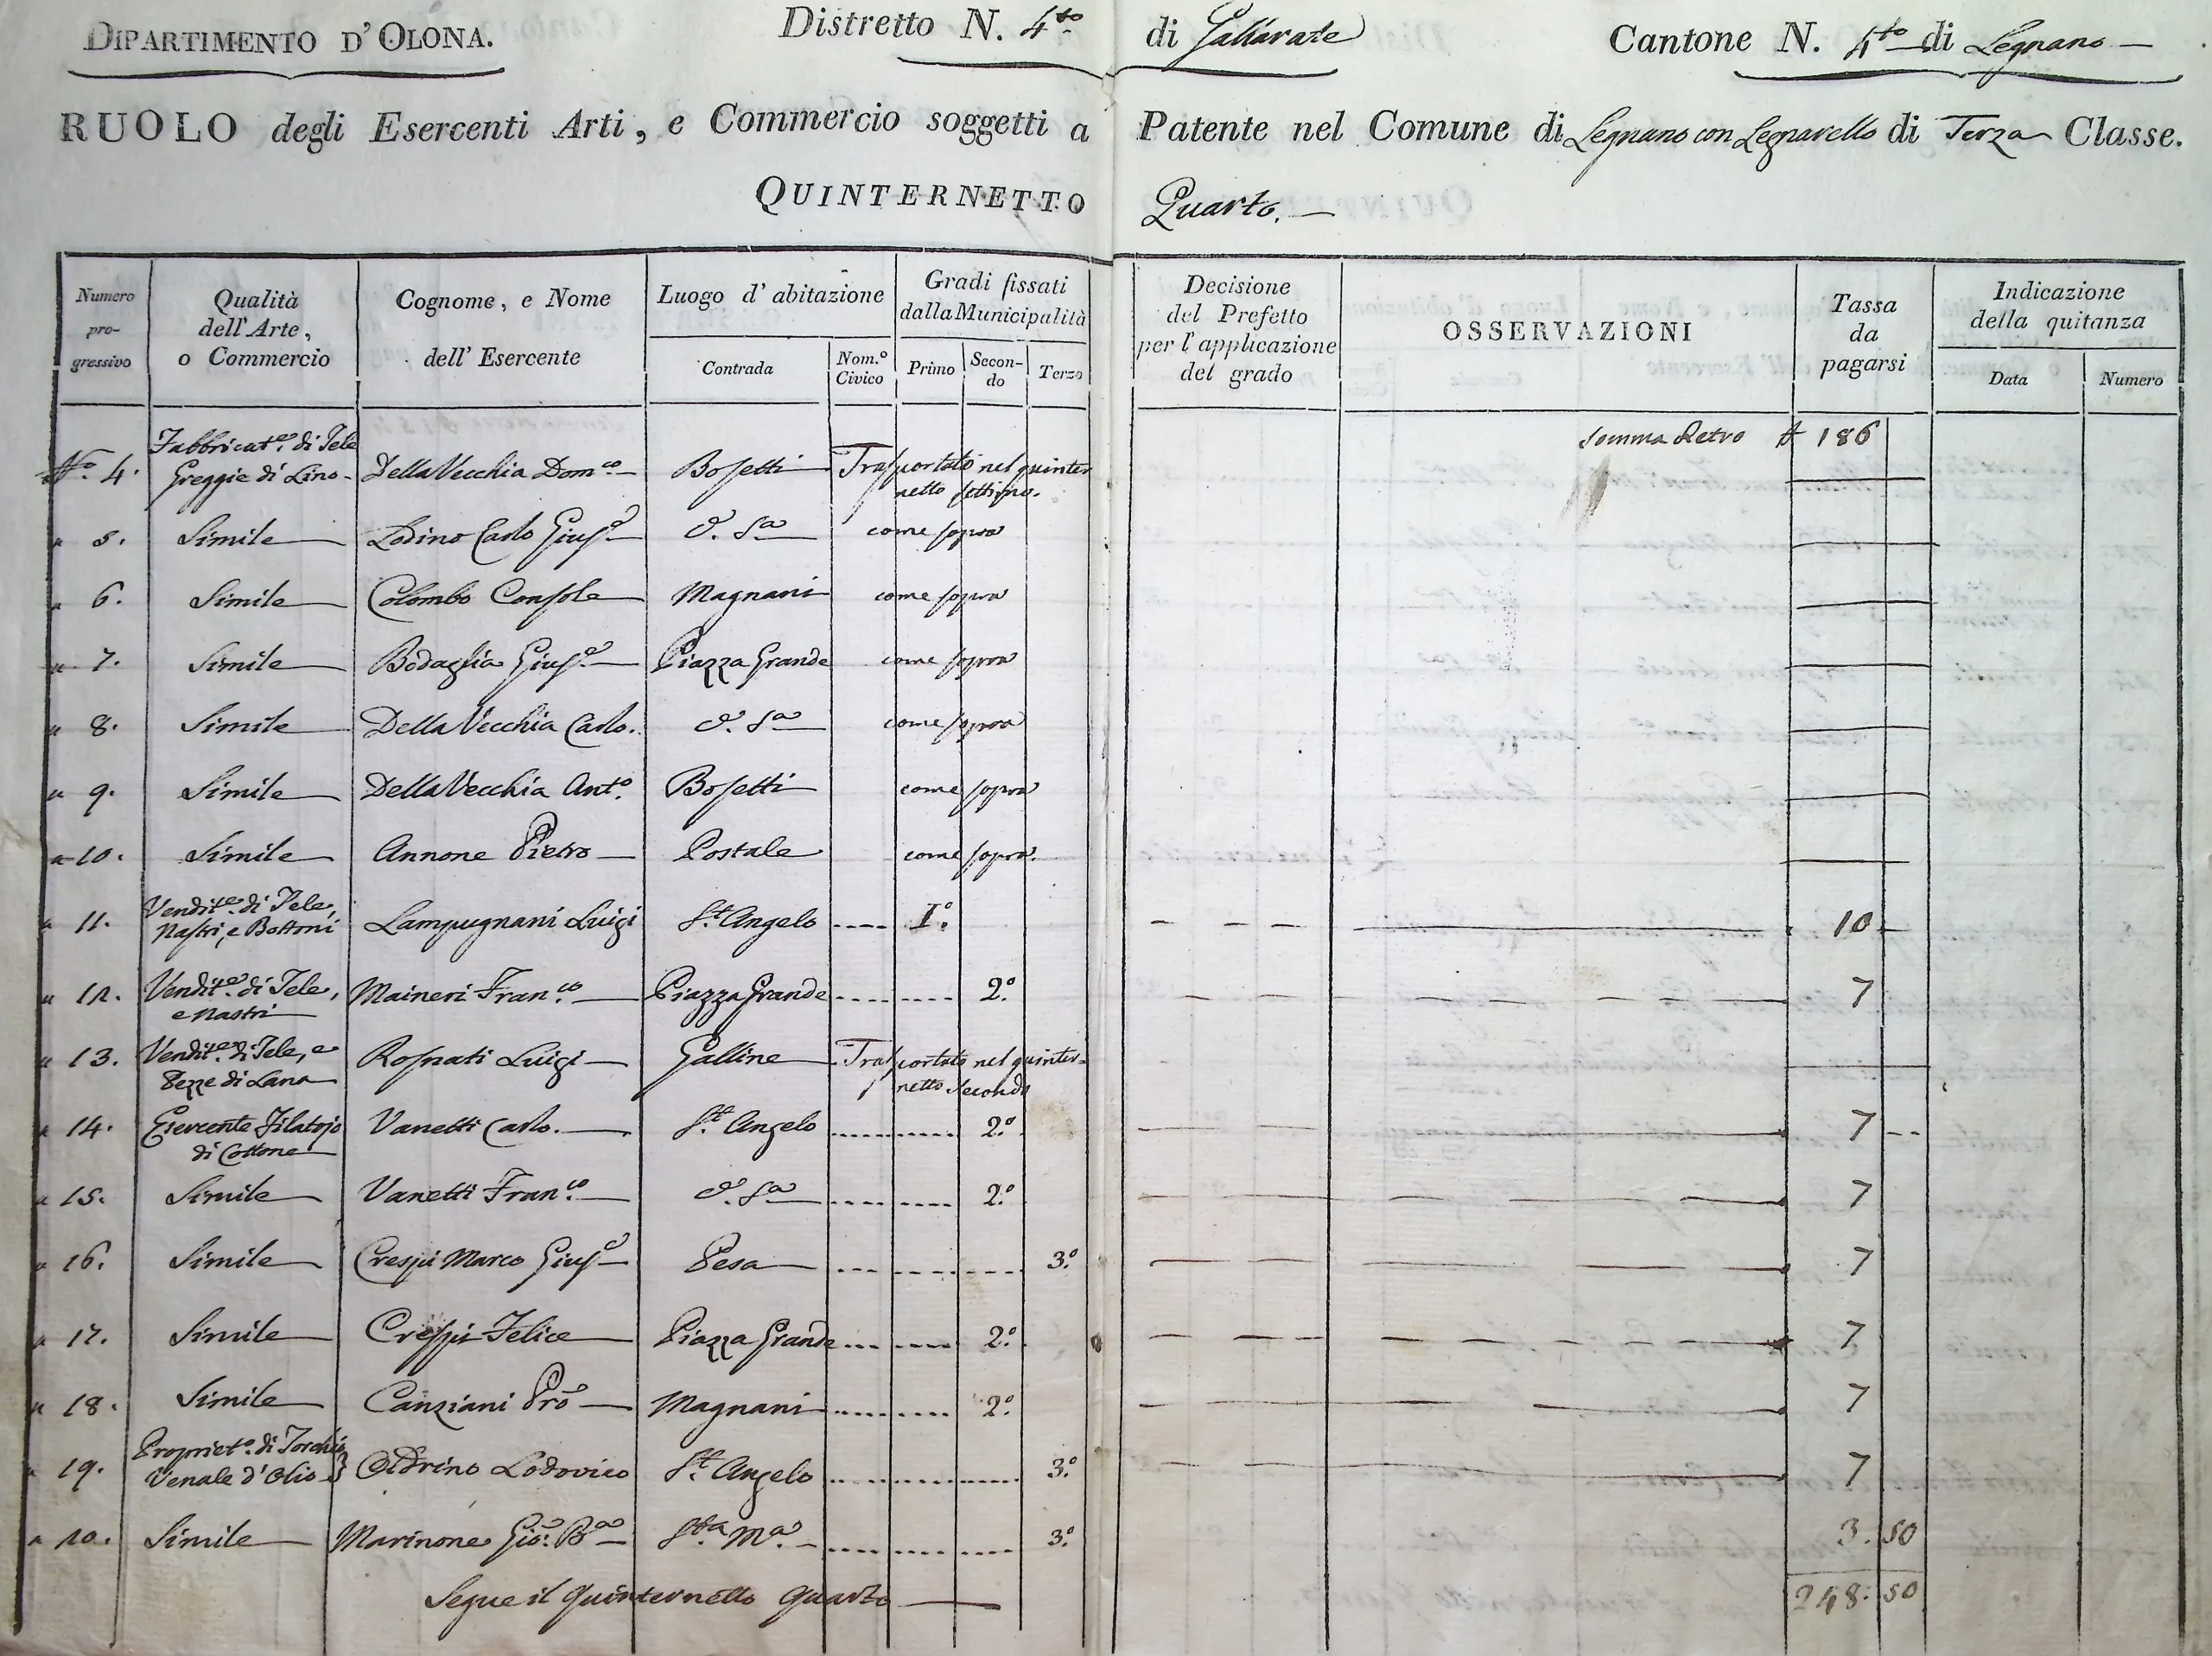 DIPARTIMENTO D'OLONA. Distretto N. 4to di Gallarate Cantone N. 4to di Legnano
RUOLO degli Esercenti Arti, e Commercio soggetti a Patente nel Comune di Legnano con Legnarello di Terza Classe.
QUINTERNETTO Quarto.
Numero progressivo
Qualità dell'Arte, o Commercio
Cognome, e Nome dell'Esercente
Luogo d'abitazione
Contrada
Nom.º Civico
Gradi fissati dalla Municipalità
Primo
Secondo
Terzo
Decisione del Prefetto per l'applicazione del grado
OSSERVAZIONI
Tassa da pagarsi
Indicazione della quitanza
Data
Numero
Somma Retro 186
Nº 4. Fabbricat.e di Tele Greggie di Lino Della Vecchia Dom.co Bosetti Trasportato nel quinternetto settimo.
" 5. Simile Lodino Carlo Gius.e d.a S.a come sopra
" 6. Simile Colombo Console Magnani come sopra
" 7. Simile Bodaglia Gius.e Piazza Grande come sopra
" 8. Simile Della Vecchia Carlo. d.a S.a come sopra
" 9. Simile Della Vecchia Ant.o Bosetti come sopra
" 10. Simile Annone Pietro Postale come sopra.
" 11. Vendit.e di Tele, Nastri, e Bottoni Lampugnani Luigi S.t Angelo Iº. 10
" 12. Vendit.e di Tele, e Nastri Maineri Fran.co Piazza Grande 2º. 7
" 13. Vendit.e di Tele, e Pezze di Lana Rosnati Luigi Galline Trasportato nel quinternetto Secondo
" 14. Esercente Filatojo di Cottone Vanetti Carlo. S.t Angelo 2º. 7
" 15. Simile Vanetti Fran.co d.a S.a 2º. 7
" 16. Simile Crespi Marco Gius.e Pesa 3º. 7
" 17. Simile Crespi Felice Piazza Grande 2º. 7
" 18. Simile Canziani Pro Magnani 2º. 7
" 19. Propriet.o di Torchio Venale d'Olio Lodovico S.t Angelo 3º. 7
" 20. Simile Marinone Gio: B.a S.ta M.a 3º. 3. 50
Segue il Quinternetto Quarto 248. 50